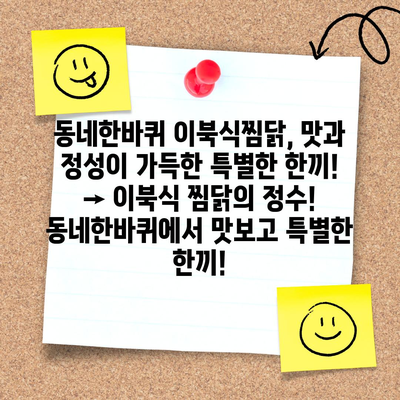 동네한바퀴 이북식찜닭, 맛과
정성이 가득한 특별한 한끼!
→ 이북식 찜닭의 정수!
동네한바퀴에서 맛보고 특별한
한끼!